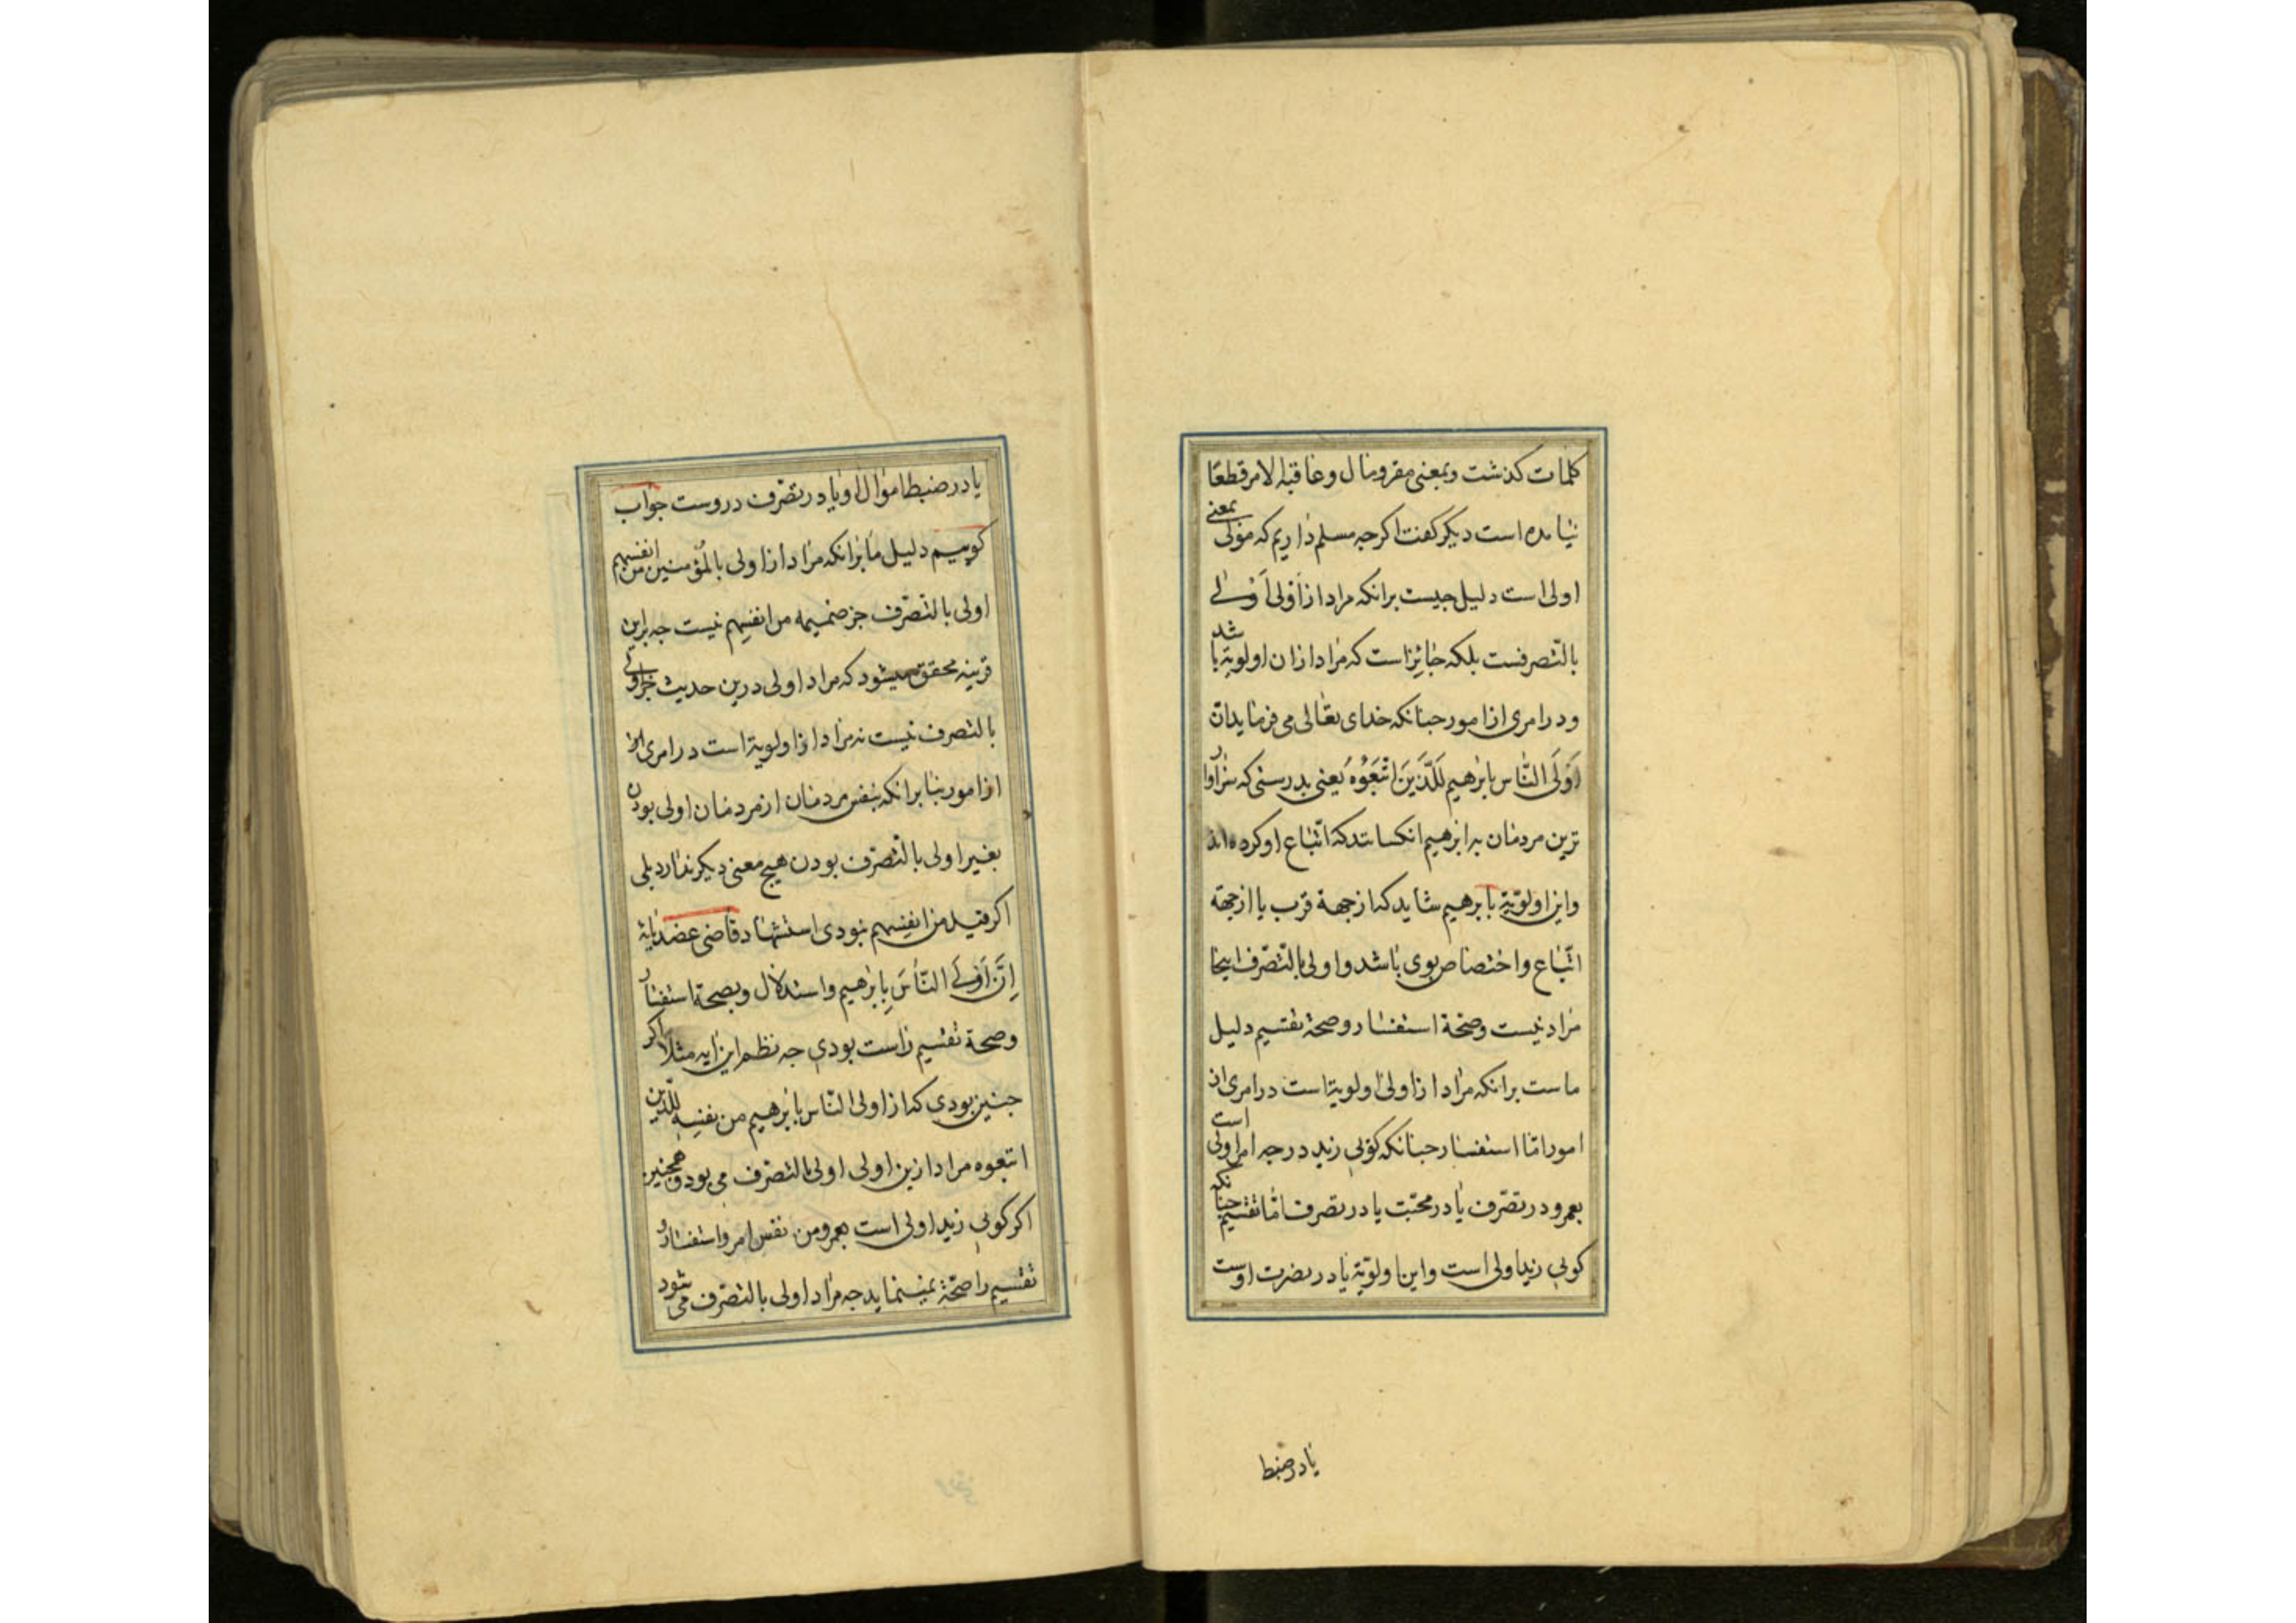 کلمات کذشت و بمعنی مقر و مال و عاقبة الامر قطعًا
نیامده است دیکر کفت اکرجه مسلم داریم که مولی بمعنی
اولی است دلیل جیست برانکه مراد از اَوْلی اَوْلی
بالتصرفست بلکه جائز است که مراد ازان اولویة باشد
و در امری از امور جنانکه خدای تعالی می فرماید اِنّ
اَوْلَی النّاس بِابرٰهیم لَلّذَینَ اتّبَعُوْه یَعنی بدرستی که سزاوار
ترین مردمان به ابرٰهیم انکسانند که اتّباع او کرده اند
واین اولویّة بابرٰهیم شاید که از جهة قرب یا از جهة
اتّباع واختصاص بوی باشد و اولی بالتّصرف اینجا
مراد نیست وصحّة استفسار وصحّة تقسیم دلیل
ماست برانکه مراد از اولی اولویة است در امری از
امور امّا استفسار جنانکه کویی زید در جه امر اولی است
بعمرو در تصرّف یا در محبّت یا در تصرف امّا تقسیم جنانکه
کویی زید اولی است واین اولویّة یا در نصرت اوست
یا در ضبط
یا در ضبط اموال او یا در تصرّف دروست جواب
کوییم دلیل ما برانکه مراد از اولی بالمُؤمنین من انفسهم
اولی بالتصّرف جز ضمیمه من انفسهم نیست جه براین
قرینه محقق میشود که مراد اولی درین حدیث جز اولی
بالتصرف نیست نه مراد از اولویة است در امری
از امور بنا برانکه بنفس مردمان از مردمان اولی بودن
بغیر اولی بالتصرّف بودن هیج معنی دیکر ندارد بلی
اکر قید من انفسهم نبودی استشهاد قاضی عضد بایة
اِنَّ اَوْلَی النّاسَ بِابرٰهیم واستدلال وبصحة استفسار
وصحة تقسیم راست بودی جه نظم این ایه مثلا اکر
جنین بودی که از اولی النّاس بابرٰهیم من نفسِه للّذین
اتبعوه مراد ازین اولی اولی بالتصرّف می بود وهمجنین
اکر کویی زید اولی است بعمرو من نفس امر واستفسار و
تقسیم را صحّة نمینماید جه مراد اولی بالتصّرف می شود